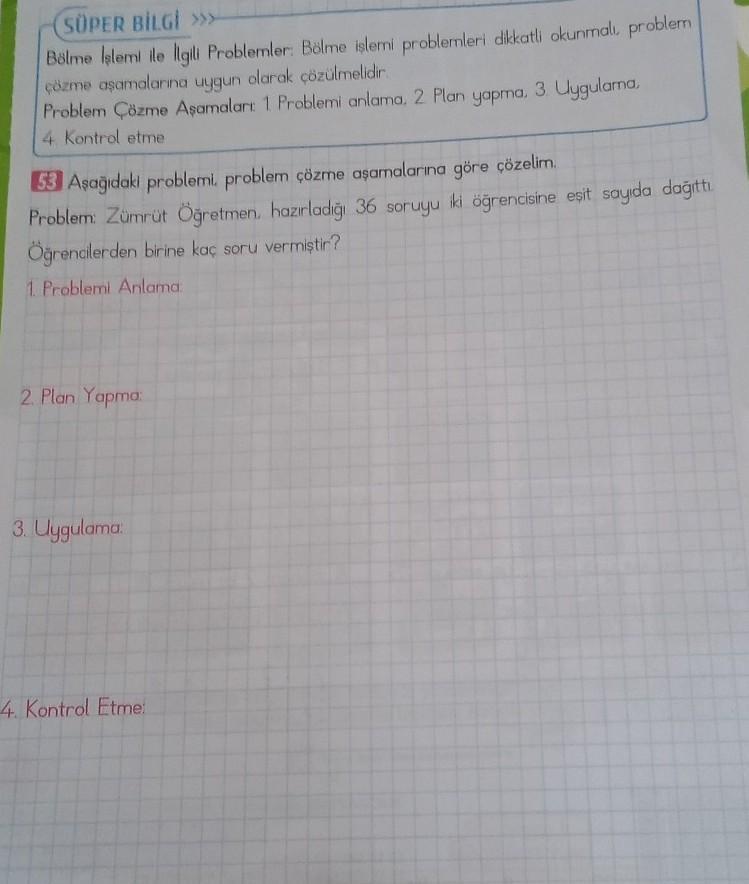 SÜPER BİLGİ >>>
Bölme İşlemi ile İlgili Problemler: Bölme işlemi problemleri dikkatli okunmalı, problem
çözme aşamalarına uygun olarak çözülmelidir.
Problem Çözme Aşamaları: 1. Problemi anlama, 2. Plan yapma, 3. Uygulama,
4. Kontrol etme
53 Aşağıdaki problemi, problem çözme aşamalarına göre çözelim.
Problem: Zümrüt Öğretmen, hazırladığı 36 soruyu iki öğrencisine eşit sayıda dağıttı.
Öğrencilerden birine kaç soru vermiştir?
1. Problemi Anlama:
2. Plan Yapma:
3. Uygulama:
4. Kontrol Etme: